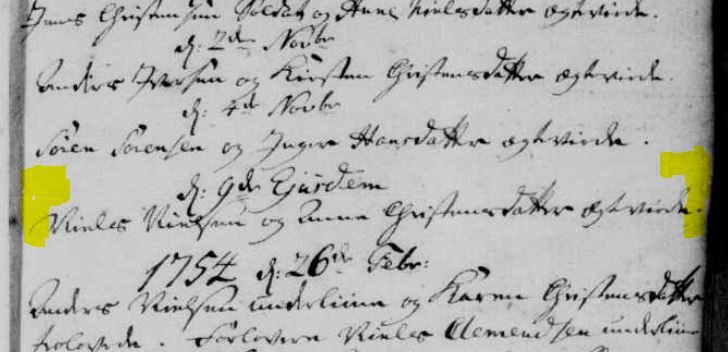 Jens Christensen Soldat og Anne Nielsdatter ægteviede.
d: 2den Novbr
Anders Iversen og Kirsten Christensdatter ægteviede.
d: 4de Novbr
Sören Sörensen og Inger Hansdatter ægteviede.
d: 9de Ejusdem
Niels Nielsen og Anna Christensdatter ægteviede.
1754 d: 26de Febr:
Anders Nielsen og Karen Christensdatter
trolovede. Forlovere Niels Clemendsen